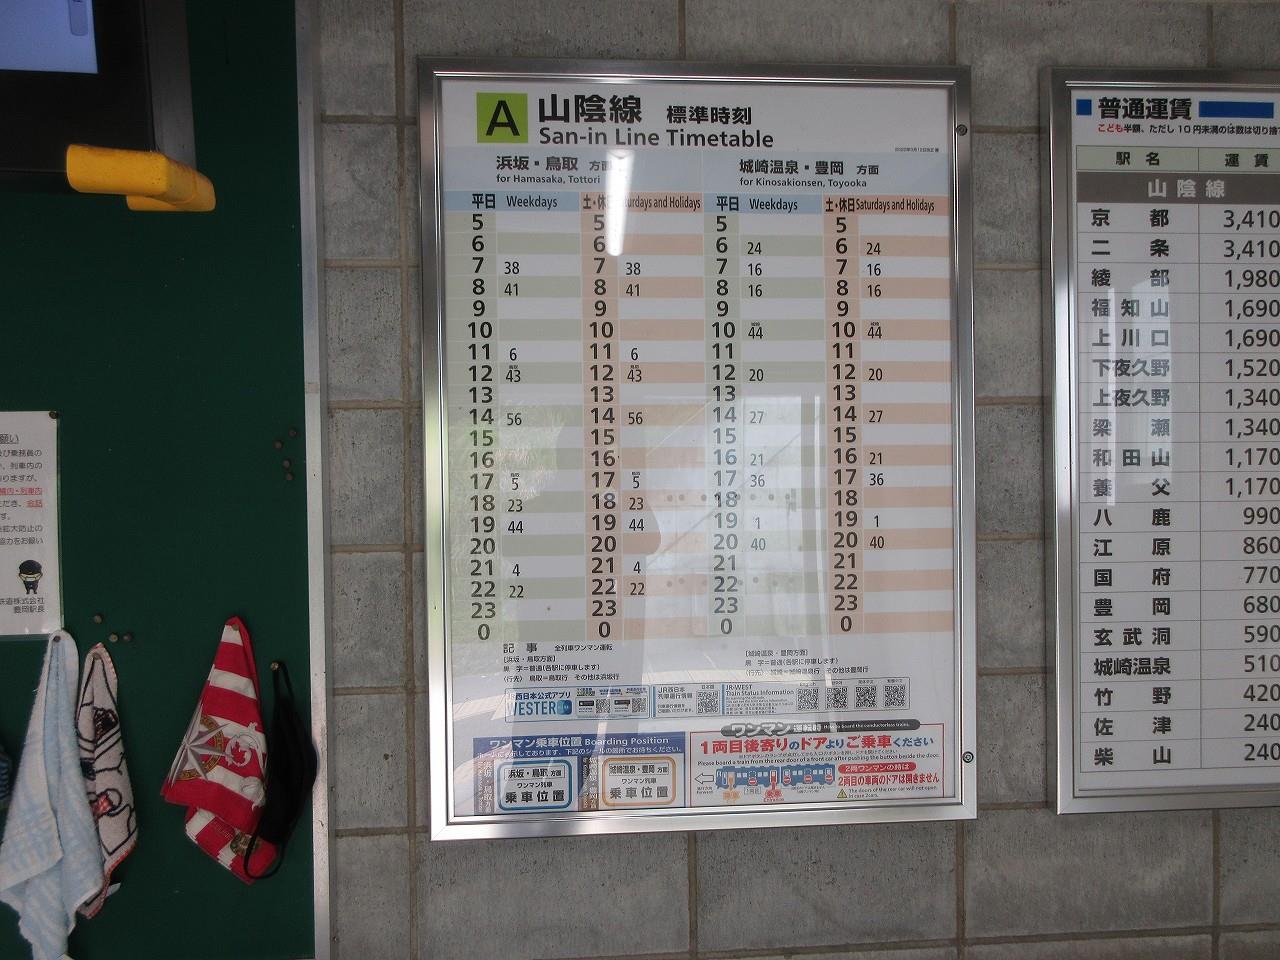 A 山陰線 標準時刻
San-in Line Timetable
浜坂・鳥取 方面
for Hamasaka, Tottori
城崎温泉・豊岡 方面
for Kinosakionsen, Toyooka
平日 Weekdays 土・休日 Saturdays and Holidays 平日 Weekdays 土・休日 Saturdays and Holidays
5 5 5 5
6 6 6 24 6 24
7 38 7 38 7 16 7 16
8 41 8 41 8 16 8 16
9 9 9 9
10 10 10 44 10 44
11 6 11 6 11 11
12 鳥取 43 12 鳥取 43 12 20 12 20
13 13 13 13
14 56 14 56 14 27 14 27
15 15 15 15
16 16 16 21 16 21
17 鳥取 5 17 鳥取 5 17 36 17 36
18 23 18 23 18 18
19 44 19 44 19 1 19 1
20 20 20 40 20 40
21 4 21 4 21 21
22 22 22 22 22 22
23 23 23 23
0 0 0 0
記 事 全列車ワンマン運転
[浜坂・鳥取方面]
黒 字=普通(各駅に停車します)
(行先) 鳥取=鳥取行 その他は浜坂行
[城崎温泉・豊岡方面]
黒 字=普通(各駅に停車します)
(行先) 城崎=城崎温泉行 その他は豊岡行
JR西日本公式アプリ
WESTER
JR西日本
列車運行情報
JR-WEST
Train Status Information
ワンマン乗車位置 Boarding Position
浜坂・鳥取 方面
ワンマン列車
乗車位置
城崎温泉・豊岡 方面
ワンマン列車
乗車位置
ワンマン運転時 How to board the conductorless trains.
1両目後寄りのドアよりご乗車ください
Please board a train from the rear door of a front car after pushing the button beside the door.
2両ワンマンの時は
2両目の車両のドアは開きません
The doors of the rear car will not open in case 2cars.
普通運賃
こども半額、ただし10円未満のは数は切り捨て
駅名 運賃
山陰線
京都 3,410
二条 3,410
綾部 1,980
福知山 1,690
上川口 1,690
下夜久野 1,520
上夜久野 1,340
梁瀬 1,340
和田山 1,170
養父 1,170
八鹿 990
江原 860
国府 770
豊岡 680
玄武洞 590
城崎温泉 510
竹野 420
佐津 240
柴山 240
願い
及び乗務員の
、列車内の
りますが、
構内・列車内
だき、会話
す。
拡大防止の
協力をお願い
鉄道株式会社
豊岡駅長